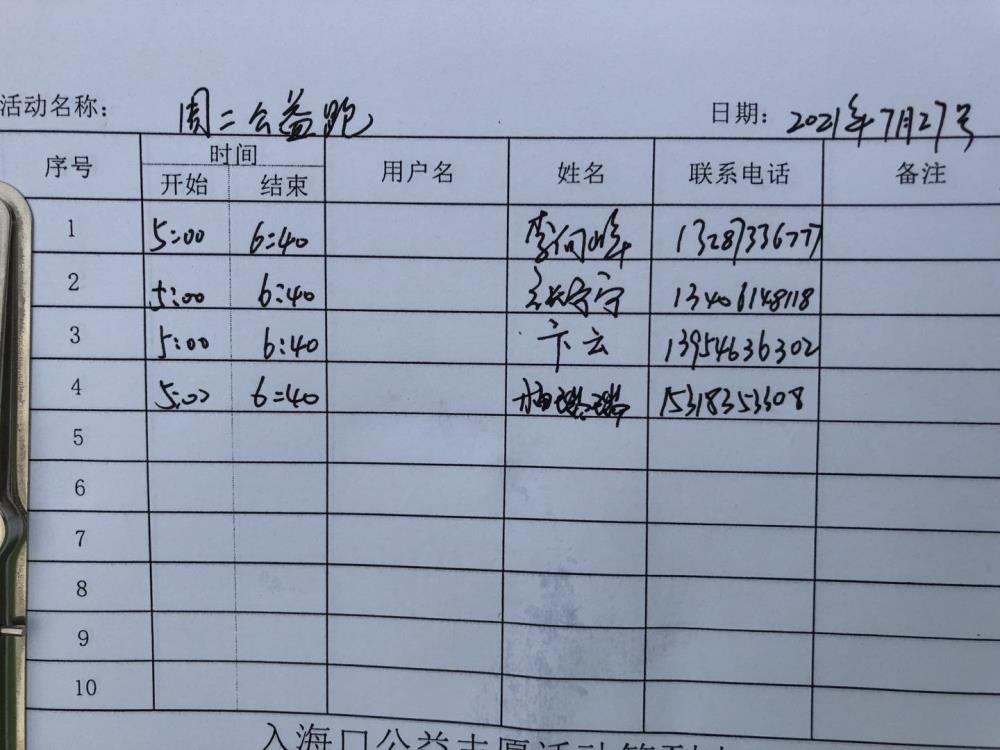 活动名称： 周二公益跑 日期： 2021年7月27号
序号 时间 用户名 姓名 联系电话 备注
开始 结束
1 5:00 6:40 李向峰 13287336777
2 5:00 6:40 13406148118
3 5:00 6:40 卞云 13954636302
4 5:00 6:40 15318353308
5
6
7
8
9
10
入海口公益志愿活动签到